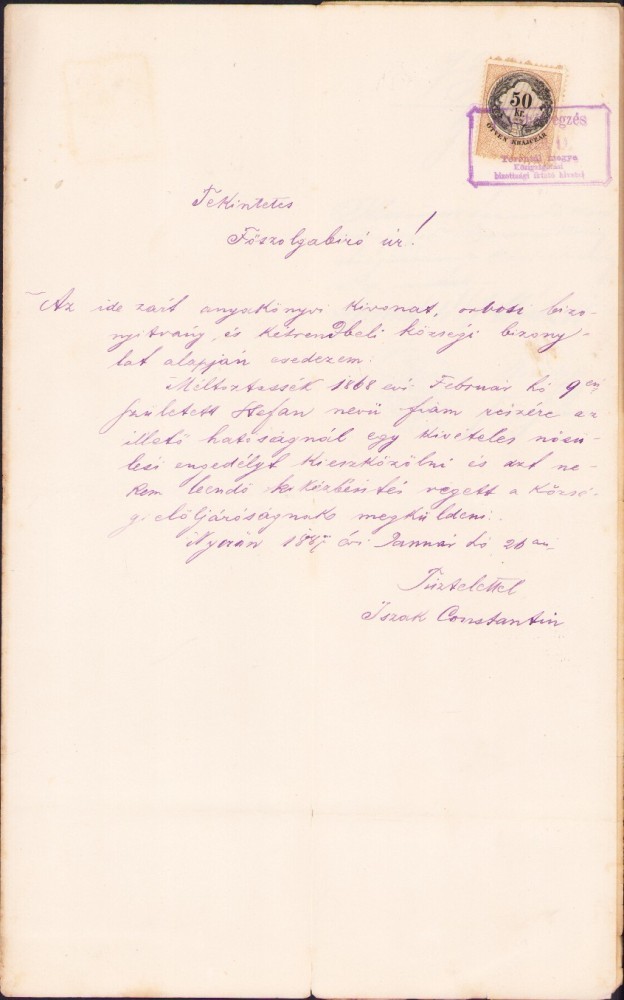 50
kr.
ÖTVEN KRAJCZÁR
Torontál megye
Közigazgatási
bizottsági
Tekintetes
Főszolgabiró úr!
Az ide zárt anyakönyvi kivonat, orvosi bizo-
nyitvány, és kétrendbeli községi bizony-
lat alapján esedezem:
Méltóztassék 1868 évi Február hó 9 én
született Stefan nevü fiam részére az
illető hatóságnál egy kivételes nösü-
lési engedélyt kieszközölni és azt ne-
kem leendő kikézbesités végett a közsé-
gi elöljáróságnak megküldeni.
1887 évi Január hó 26 án
Tisztelettel
Iszak Constantin